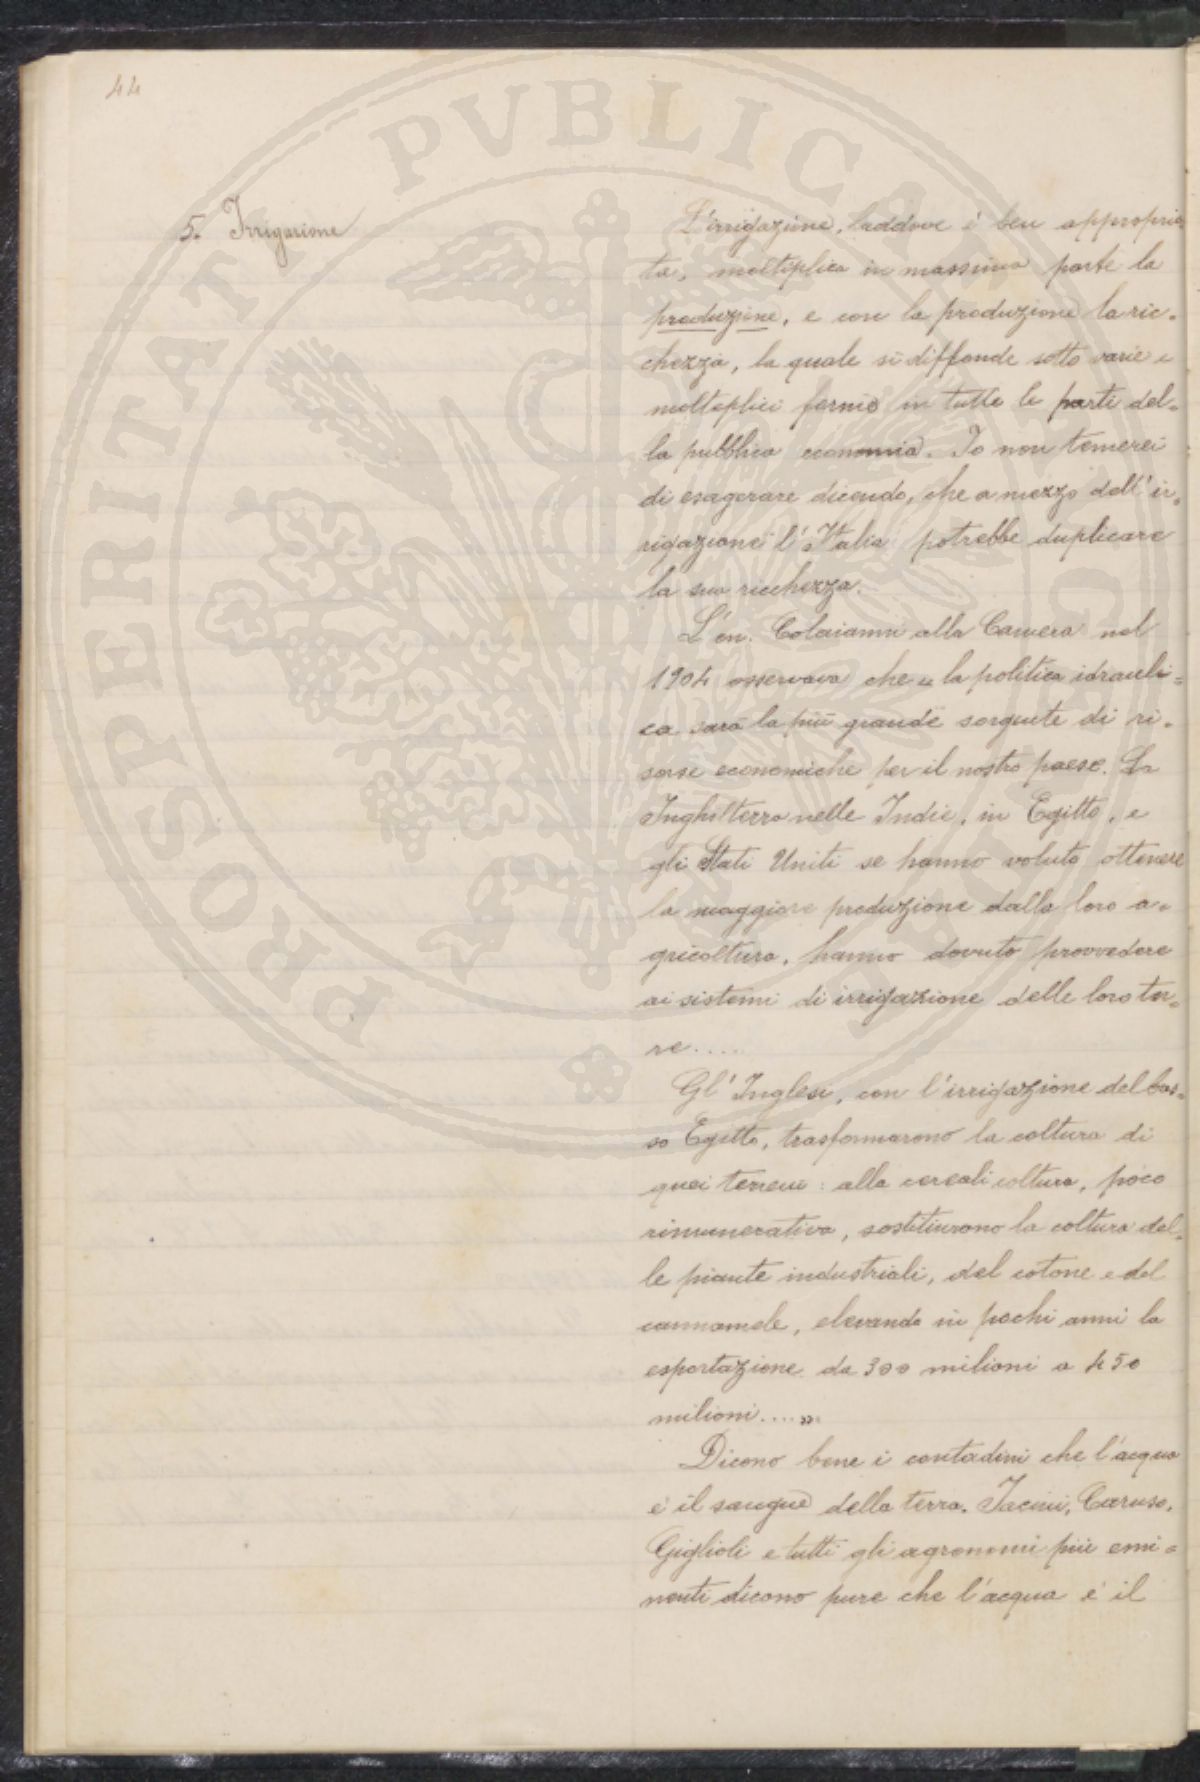 44
5. Irrigazione
L'irrigazione, laddove è ben appropria
ta, moltiplica in massima parte la
produzione, e con la produzione la ric=
chezza, la quale si diffonde sotto varie e
molteplici forme in tutte le parti del=
la pubblica economia. Io non temerei
di esagerare dicendo, che a mezzo dell'ir=
rigazione l'Italia potrebbe duplicare
la sua ricchezza.
L'on. Colaianni alla Camera nel
1904 osservava che „ la politica idrauli=
ca sarà la più grande sorgente di ri=
sorse economiche per il nostro paese. La
Inghilterra nelle Indie, in Egitto, e
gli Stati Uniti se hanno voluto ottenere
la maggiore produzione dalla loro a=
gricoltura, hanno dovuto provvedere
ai sistemi di irrigazione delle loro ter=
re....
Gl'Inglesi, con l'irrigazione del bas=
so Egitto, trasformarono la coltura di
quei terreni: alla cerealicoltura, poco
rimunerativa, sostituirono la coltura del=
le piante industriali, del cotone e del
cannamele, elevando in pochi anni la
esportazione da 300 milioni a 450
milioni....»
Dicono bene i contadini che l'acqua
è il sangue della terra. Jacini, Caruso,
Giglioli e tutti gli agronomi più emi=
nenti dicono pure che l'acqua è il
PROSPERITATI PVBLICAE AVGENDAE